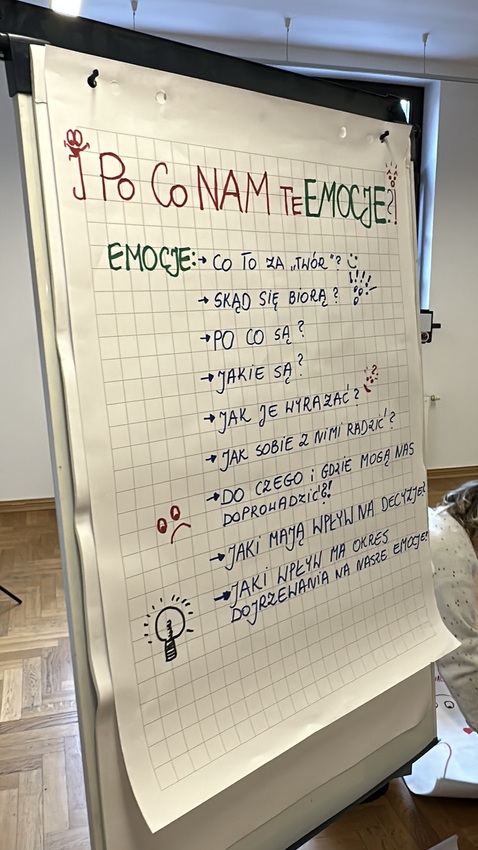 I PO CO NAM TE EMOCJE?!
EMOCJE: → CO TO ZA „TWÓR"?
→ SKĄD SIĘ BIORĄ?
→ PO CO SĄ?
→ JAKIE SĄ?
→ JAK JE WYRAŻAĆ?
→ JAK SOBIE Z NIMI RADZIĆ?
→ DO CZEGO i GDZIE MOGĄ NAS
DOPROWADZIĆ?!
→ JAKI MAJĄ WPŁYW NA DECYZJE?
→ JAKI WPŁYW MA OKRES
DOJRZEWANIA NA NASZE EMOCJE?